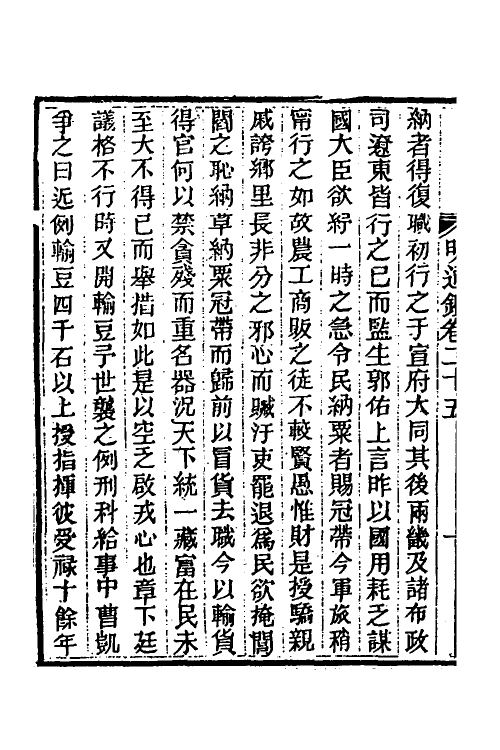 明通鑑卷二十五
納者得復職初行之于宣府大同其後兩畿及諸布政
司遼東皆行之已而監生郭佑上言昨以國用耗乏謀
國大臣欲紓一時之急令民納粟者賜冠帶今軍旅稍
甯行之如故農工商販之徒不較賢愚惟財是授驕親
戚誇鄉里長非分之邪心而贓汙吏罷退爲民欲掩閭
閻之恥納草納粟冠帶而歸前以冒貨去職今以輸貨
得官何以禁貪殘而重名器況天下統一藏富在民未
至大不得已而舉措如此是以空乏啟戎心也章下廷
議格不行時又開輸豆予世襲之例刑科給事中曹凱
爭之曰近例輸豆四千石以上授指揮彼受祿十餘年